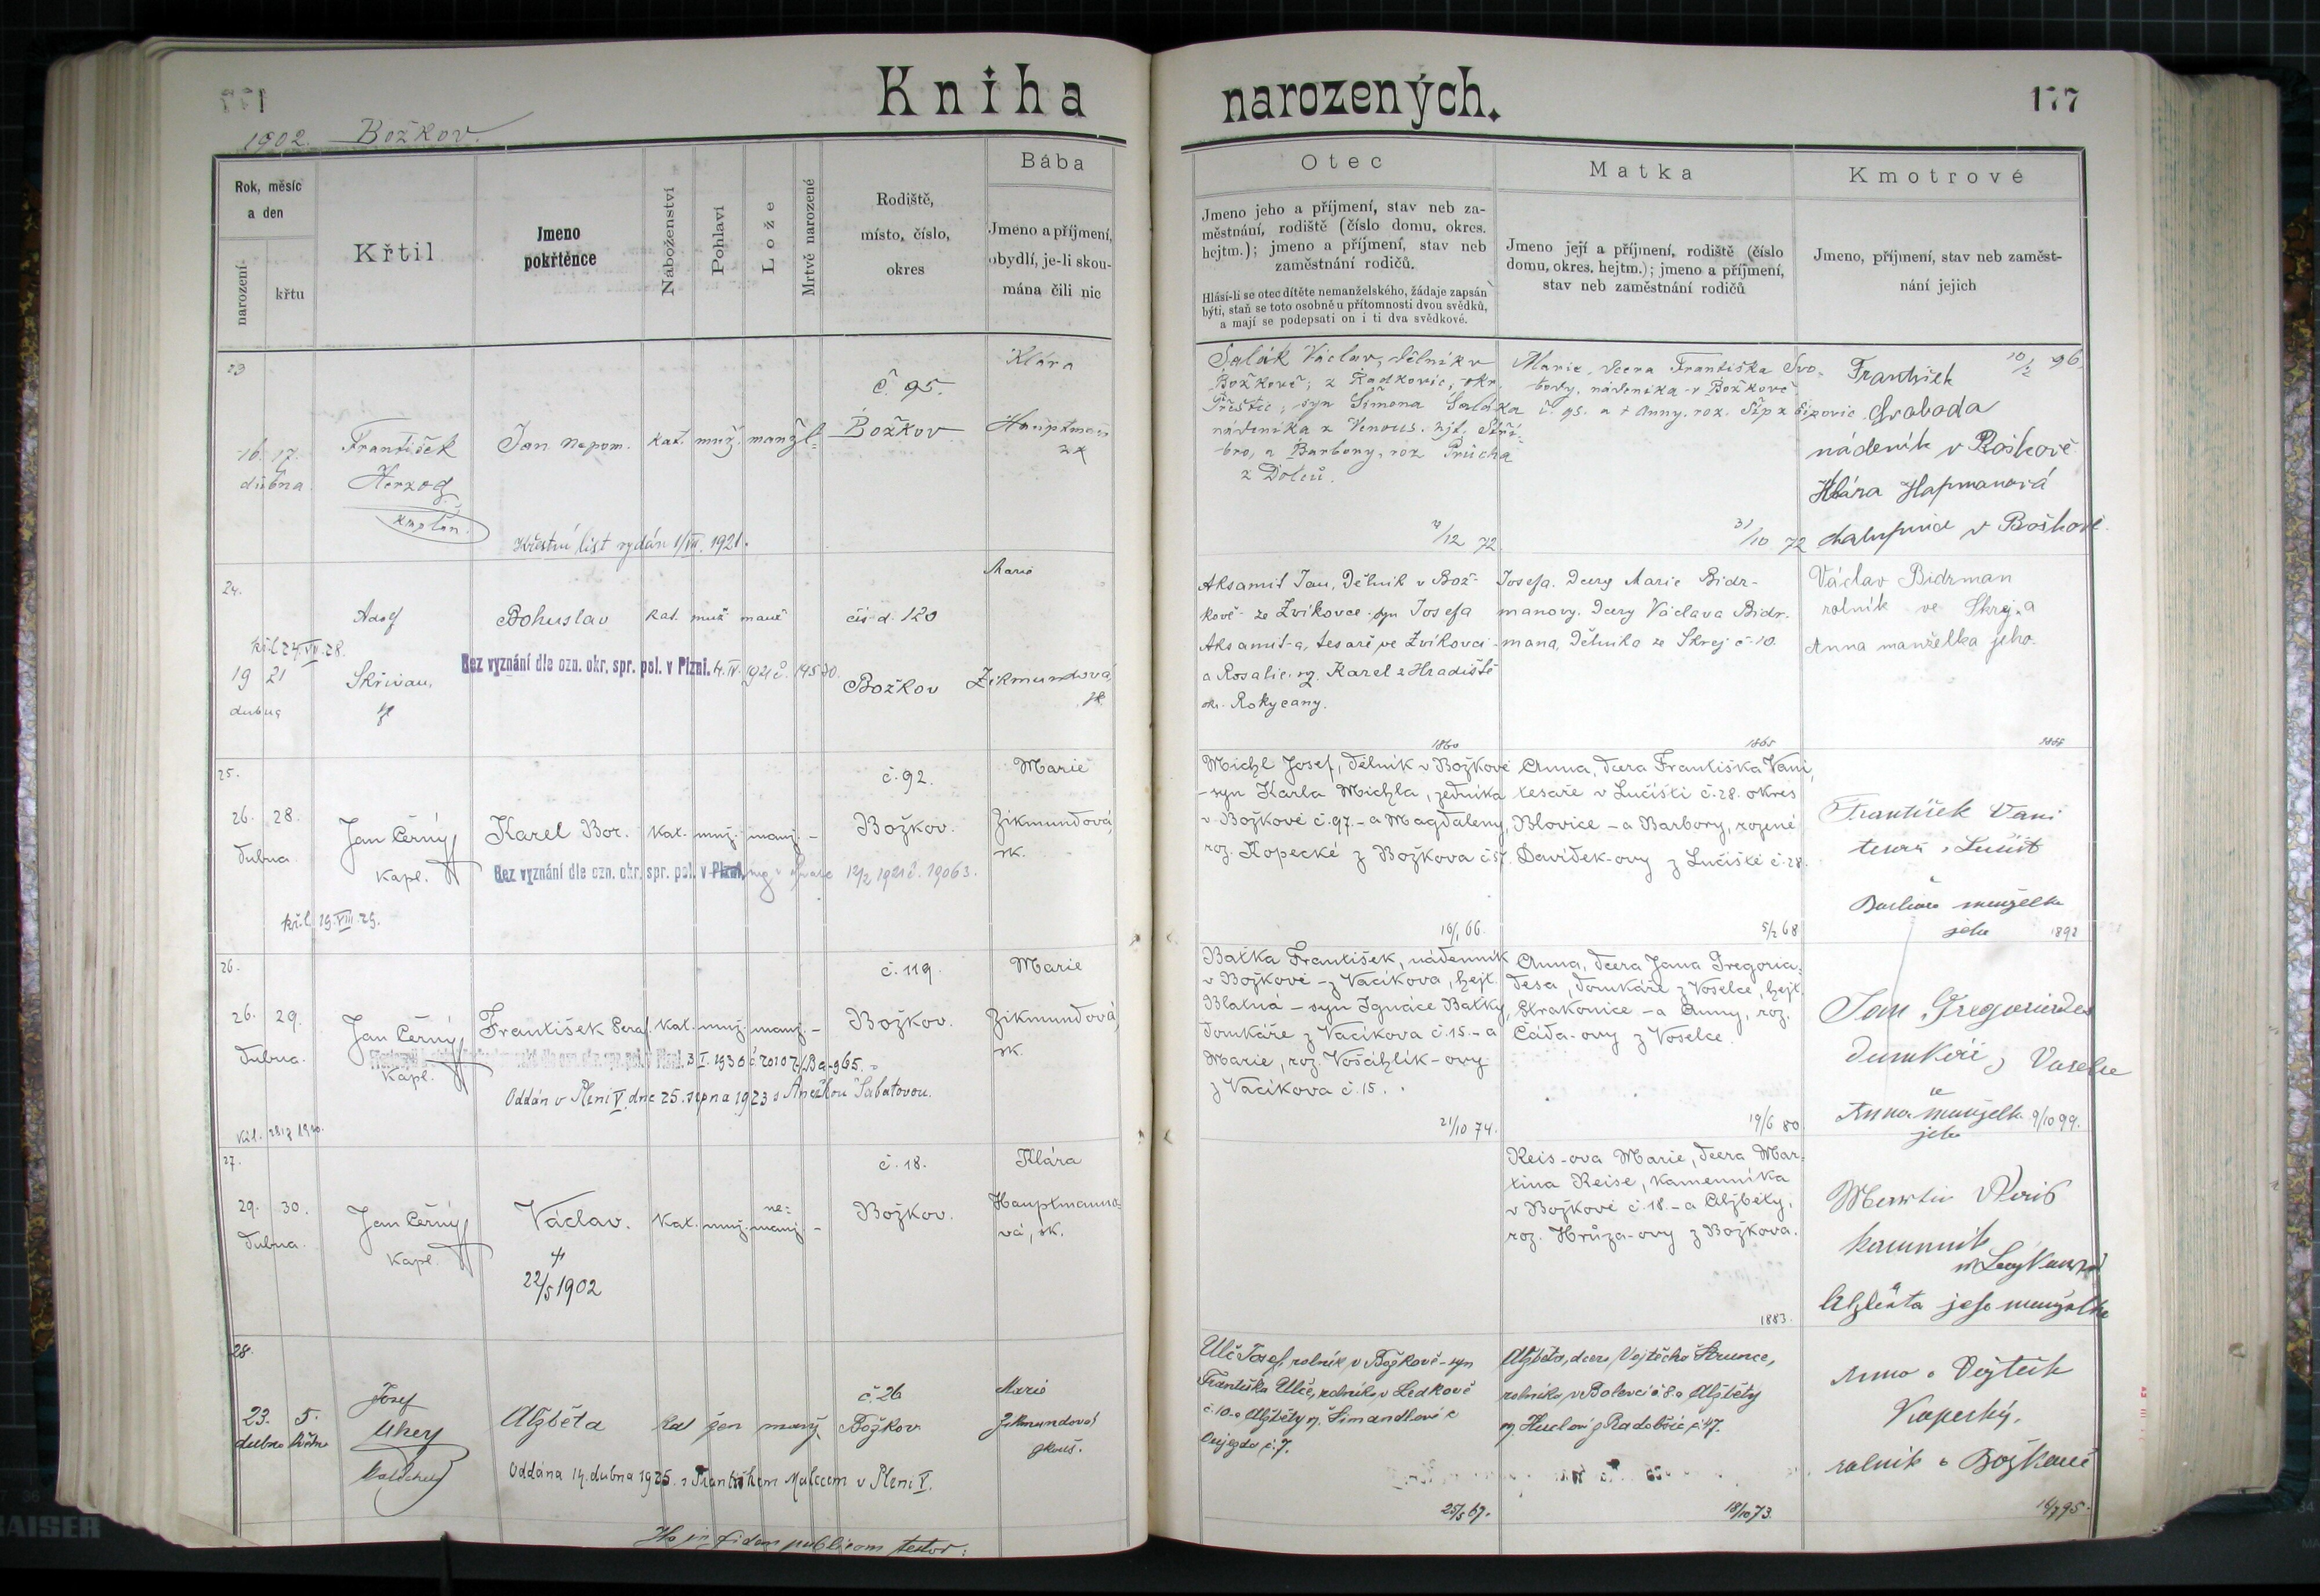 Kniha narozených.
177
1902. Božkov.
Rok, měsíc
a den
narození
křtu
Křtil
Jmeno
pokřtěnce
Náboženství
Pohlaví
Lože
Mrtvě narozené
Rodiště,
místo, číslo,
okres
Bába
Jmeno a příjmení,
obydlí, je-li skou-
mána čili nic
Otec
Jmeno jeho a příjmení, stav neb za-
městnání, rodiště (číslo domu, okres.
hejtm.); jmeno a příjmení, stav neb
zaměstnání rodičů.
Hlásí-li se otec dítěte nemanželského, žádaje zapsán
býti, staň se toto osobně u přítomnosti dvou svědků,
a mají se podepsati on i ti dva svědkové.
Matka
Jmeno její a příjmení, rodiště (číslo
domu, okres. hejtm.); jmeno a příjmení,
stav neb zaměstnání rodičů
Kmotrové
Jmeno, příjmení, stav neb zaměst-
nání jejich
23
16. 17.
dubna
František
Herzog
kaplan.
Jan Nepom.
kat. muž. manžl.
č. 95.
Božkov
Klára
Křestní list vydán 1/VII. 1921.
Salák Václav, dělník v
Božkově; z Radkovic, okr.
Přeštic, syn Šimona Saláka
nádeníka z Venous. hjt. Stří-
bro, a Barbory, roz Průcha
z Dolců.
4/12 72
Marie, dcera Františka Svo-
body, nádeníka v Božkově
č. 95. a + Anny, roz.
31/10 72
František
10/2 96
Svoboda
nádeník v Boškově
Klára Hapmanová
chalupnice v Boškově
24.
19 21
dubna
Adolf
Bohuslav
kat. muž manž
čís d. 120
Božkov
Marie
Zikmundová
Bez vyznání dle ozn. okr. spr. pol. v Plzni. 4. IV. 1921 č. 14530.
Aksamit Jan, Dělník v Bož-
kově ze Zvíkovce syn Josefa
Aksamit-a, tesaře ve Zvíkovci
a Rosalie, roz. Karel z Hradiště
okr. Rokycany.
1860
Josefa. Dcery Marie Bidr-
manovy. Dcery Václava Bidr-
mana, Dělníka ze Skrej č. 10.
1865
Václav Bidrman
rolník ve Skrej. a
Anna manželka jeho.
25.
26. 28.
dubna
Jan Černý
kapl.
Karel Bor.
kat. muž. manž. -
č. 92.
Božkov.
Marie
Zikmundová,
zk.
Bez vyznání dle ozn. okr. spr. pol. v Plzni, 12/2 1921 č. 19063.
křt. 19. VIII. 29.
Michl Josef, dělník v Božkově
- syn Karla Michla, zedníka
v Božkově č. 97. - a Magdaleny,
roz. Kopecké z Božkova č. 57.
16/1 66.
Anna, dcera Františka Vaní,
tesaře v Lučišti č. 28. okres
Blovice - a Barbory, rozené
Davídek-ovy z Lučiště č. 28.
5/2 68
František Vaní
manželka
jeho 1892
26.
26. 29.
dubna.
Jan Černý
kapl.
František Seraf.
kat. muž. manž. -
č. 119.
Božkov.
Marie
Zikmundová,
zk.
Oddán v Plzni V. dne 25. srpna 1923 s Anežkou Šabatovou.
Baťka František, nádenník
v Božkově - z Vacíkova, hejt.
Blatná - syn Ignáce Baťky,
domkáře z Vacíkova č. 15. - a
Marie, roz. Vošahlík-ovy
z Vacíkova č. 15.
21/10 74.
Anna, dcera Jana Gregoria-
desa, domkáře z Voselce, hejt.
Strakonice - a Anny, roz.
Cáda-ovy z Voselce.
19/6 80
Jan Gregoriades
domkář z Voselce
Anna manželk. 9/10 99.
jeho
27.
29. 30.
dubna.
Jan Černý
kapl.
Václav.
kat. muž. ne-
manž. -
č. 18.
Božkov.
Klára
Hauptmanno-
vá, zk.
†
22/5 1902
Reis-ova Marie, dcera Mar-
tina Reise, kamenníka
v Božkově č. 18. - a Alžběty,
roz. Hrůza-ovy z Božkova.
1883.
Martin Reis
kamenník
Alžběta jeho manželka
28.
23. 5.
dubna května
Josef
Alžběta
kat žen manž.
č. 26
Božkov
Marie
Zikmundová
zkouš.
Oddána 14. dubna 1925. s Františkem Malecem v Plzni V.
Ulč Josef, rolník v Božkově - syn
Františka Ulče, rolníka v Ledkově
č. 10. a Alžběty r. Šimandlové z
č. 7.
25/5 67.
Alžběta, dcera Vojtěcha Strunce,
rolníka v Bolevci č 8 a Alžběty
18/10 73.
Anna a Vojtěch
Kaperský,
rolník v Božkově
16/7 95.
in fidem publicam testor: